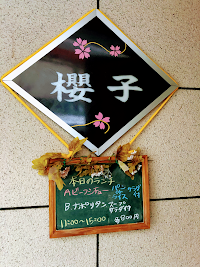 櫻子
本日のランチ
A.ビーフシチュー パン ライス サラダ付
B.ナポリタン スープ サラダ付
11:00～15:00 ¥800円